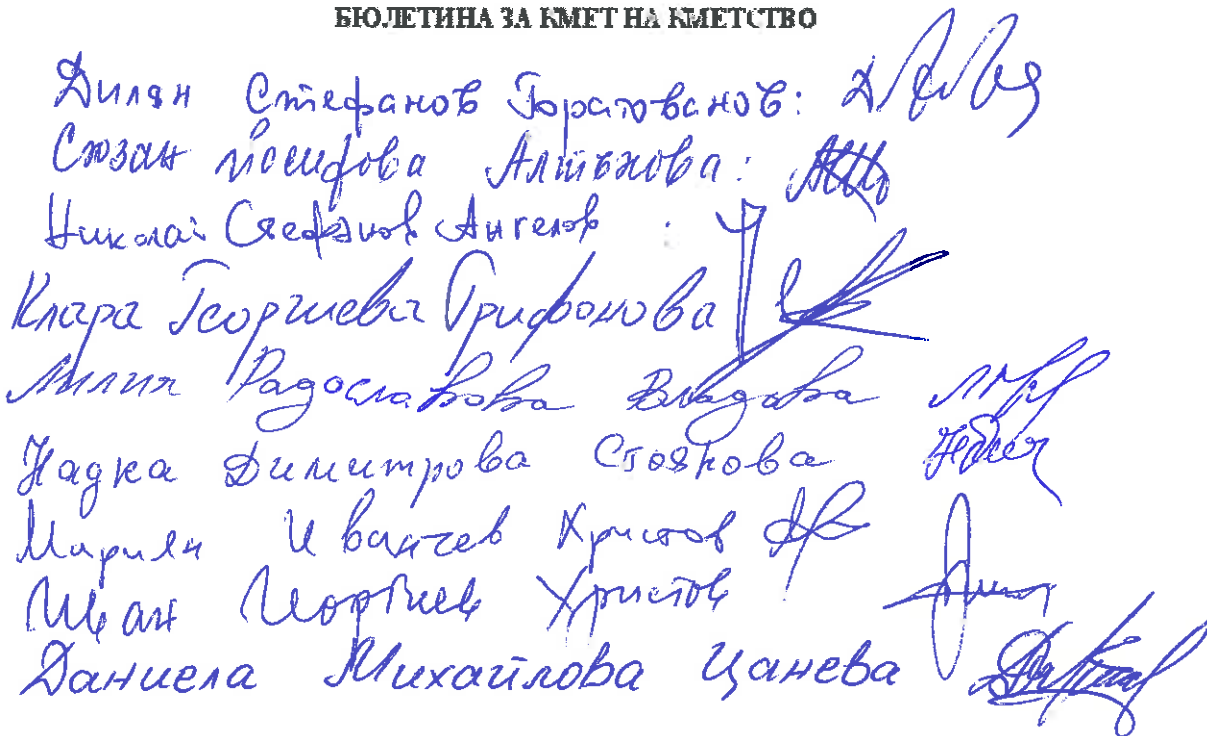 БЮЛЕТИНА ЗА КМЕТ НА КМЕТСТВО
Дилян Стефанов :
Сюзан Йосифова Алтънова:
Николай Стефанов Ангелов :
Клара Георгиева Трифонова
Лилия Радославова Владова
Надка Димитрова Стоянова
Мариян Иванчев Христов
Иван Георгиев Христов
Даниела Михайлова Цанева